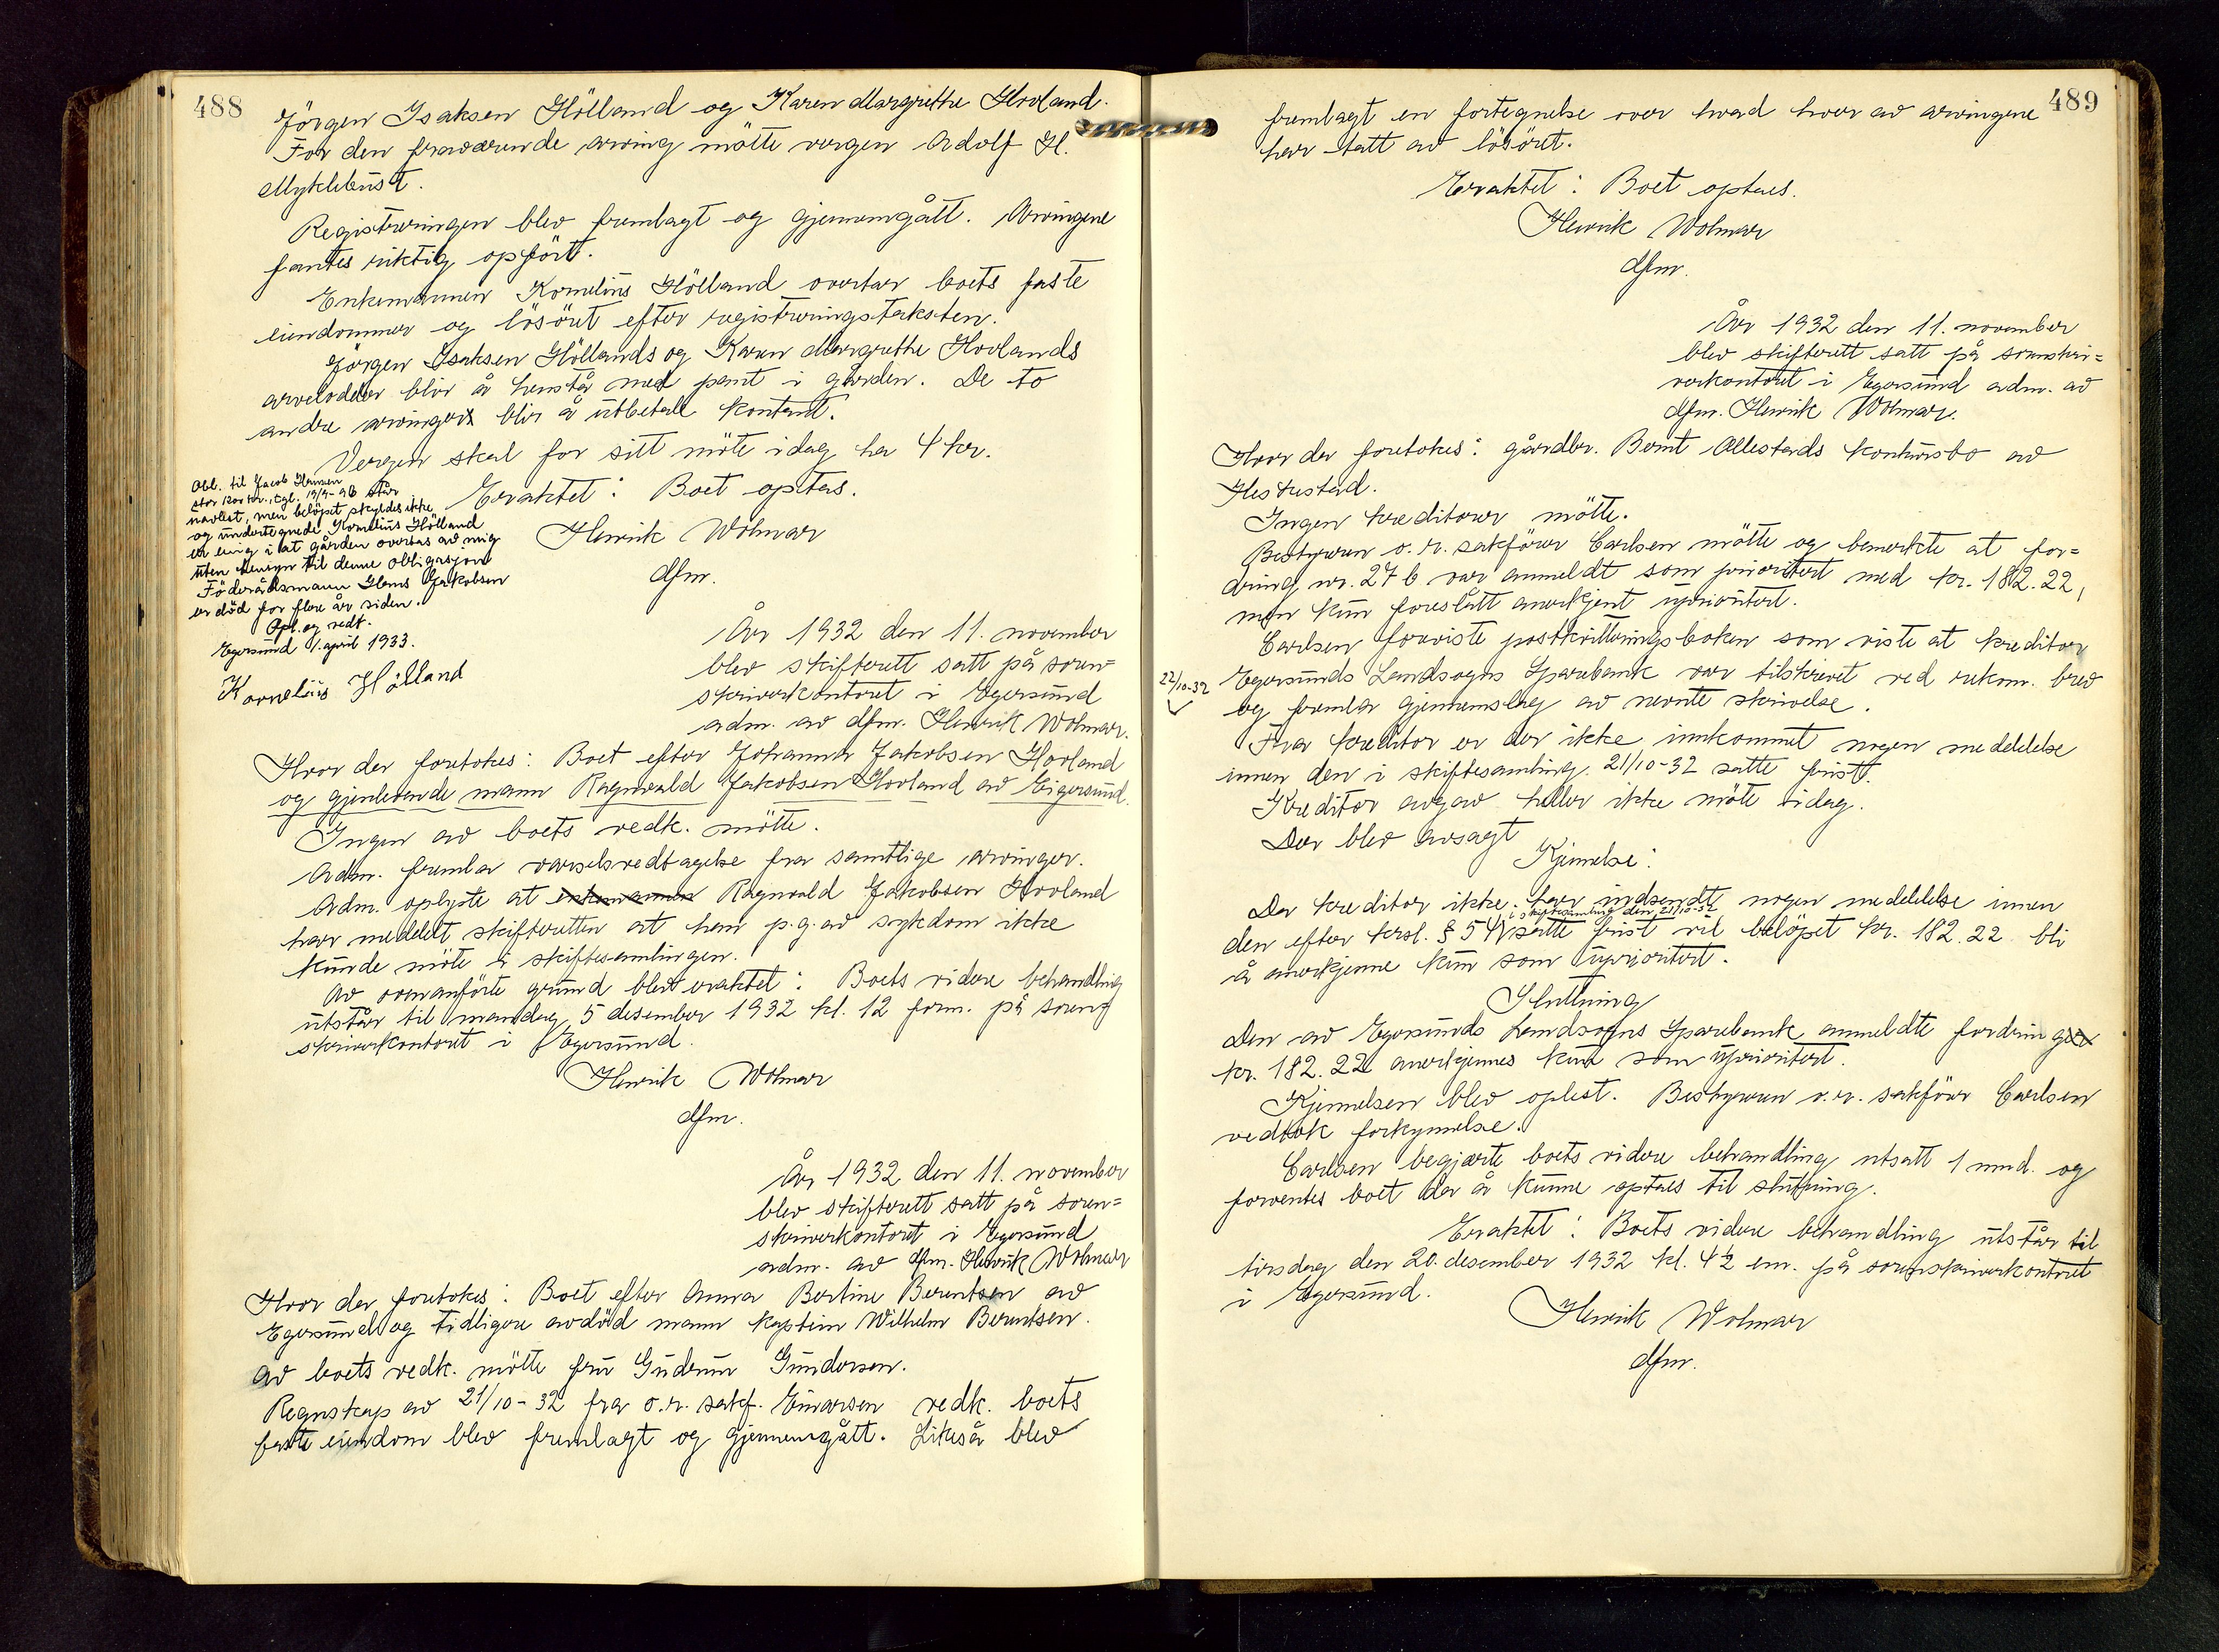 488
Jörgen Isaksen Hölland og Karen Margrethe Hovland.
For den fraværende arving mötte vergen Adolf H.
Myklebust.
Registreringen blev fremlagt og gjennemgått. Arvingene
fantes riktig opfört.
Enkemannen Kornelius Hölland overtar boets faste
eiendommer og lösöret efter registreringstaksten.
Jörgen Isaksen Höllands og Karen Margrethe Hovlands
arvelodder blir å henstå med pant i gården. De to
andre arvinger blir å utbetale kontant.
Vergen skal for sitt möte idag ha 4 kr.
Eraktet: Boet optas.
Henrik Wolmar
dfm.
Obl. til Jacob Hansen
stor 1200 kr., tgl. 19/9-96 står
uavlest, men belöpet skyldes ikke
og undertegnede Kornelius Hölland
er enig i at gården overtas av mig
uten hensyn til denne obligasjon
Föderådsmann Hans Jakobsen
er död for flere år siden.
Opl. og vedt.
Egersund 1/. april 1933.
Kornelius Hölland
År 1932 den 11. november
blev skifterett satt på soren-
skriverkontoret i Egersund
adm. av dfm. Henrik Wolmar.
Hvor der foretokes: Boet efter Johanna Jakobsen Hovland
og gjenlevende mann Ragnvald Jakobsen Hovland av Eigersund.
Ingen av boets vedk. mötte.
Adm. fremla varselsvedtagelse fra samtlige arvinger.
Adm. oplyste at enkemannen Ragnvald Jakobsen Hovland
har meddelt skifteretten at han p.g.av sykdom ikke
kunde möte i skiftesamlingen.
Av ovenanförte grund blev eraktet: Boets videre behandling
utstår til mandag 5 desember 1932 kl. 12 form. på soren-
skriverkontoret i Egersund.
Henrik Wolmar
dfm.
År 1932 den 11. november
blev skifterett satt på soren-
skriverkontoret i Egersund
adm. av dfm. Henrik Wolmar
Hvor der foretokes: Boet efter Anna Bertine Berentsen av
Egersund og tidligere avdöd mann kaptein Wilhelm Berentsen.
Av boets vedk. mötte fru Gudrun Gundersen.
Regnskap av 21/10-32 fra o.r. sakf. Einarsen vedk. boets
faste eiendom blev fremlagt og gjennemgått. Likeså blev
489
fremlagt en fortegnelse over hvad hver av arvingene
har tatt av lösöret.
Eraktet: Boet optaes.
Henrik Wolmar
dfm.
År 1932 den 11. november
blev skifterett satt på sorenskri-
verkontoret i Egersund adm. av
dfm. Henrik Wolmar.
Hvor der foretokes: gårdbr. Bernt Allestads konkursbo av
Hestestad.
Ingen kreditorer mötte.
Bestyreren o.r. sakförer Carlsen mötte og bemerkte at for-
dring nr. 27 b var anmeldt som prioritert med kr. 182.22,
men kun foreslått anerkjent uprioritert.
Carlsen foreviste postkvitteringsboken som viste at kreditor
Egersunds Landsogns Sparebank var tilskrevet ved rekom. brev
22/10-32
og fremla gjennemslag av nevnte skrivelse.
Fra kreditor er der ikke innkommet nogen meddelelse
innen den i skiftesamling 21/10-32 satte frist.
Kreditor avgav heller ikke möte idag.
Der blev avsagt
Kjennelse:
Da kreditor ikke har indsendt nogen meddelelse innen
i skiftesamling den 21/10-32
den efter krsl. § 54 satte frist vil belöpet kr. 182.22 bli
å anerkjenne kun som uprioritert.
Slutning
Den av Egersunds Landsogns Sparebank anmeldte fordring
kr. 182.22 anerkjennes kun som uprioritert.
Kjennelsen blev oplest. Bestyreren o.r. sakförer Carlsen
vedtok forkynnelse.
Carlsen begjærte boets videre behandling utsatt 1 mnd. og
forventes boet da å kunne optaes til slutning.
Eraktet: Boets videre behandling utstår til
tirsdag den 20. desember 1932 kl. 4½ em. på sorenskriverkontoret
i Egersund.
Henrik Wolmar
dfm.